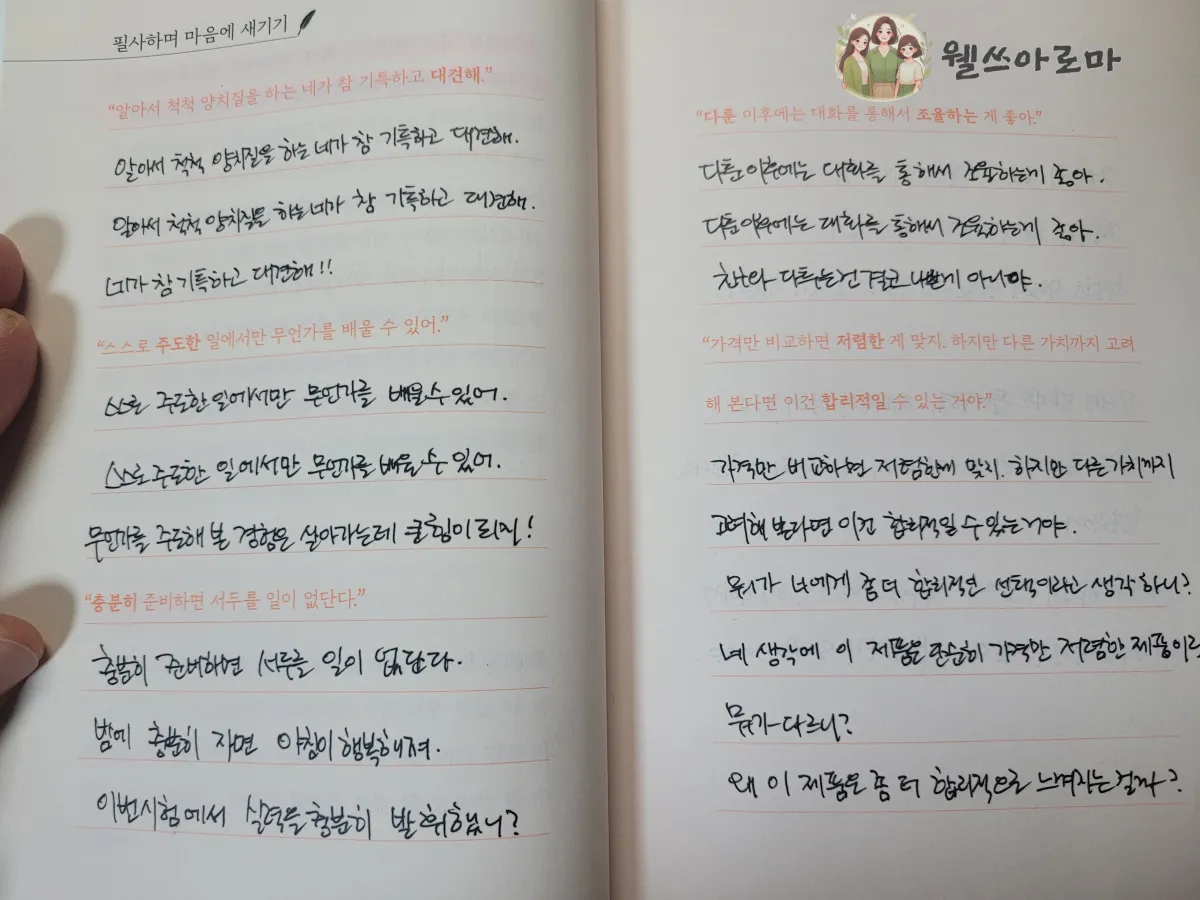 필사하며 마음에 새기기
“알아서 척척 양치질을 하는 네가 참 기특하고 대견해.”
알아서 척척 양치질을 하는 네가 참 기특하고 대견해.
알아서 척척 양치질을 하는 네가 참 기특하고 대견해.
네가 참 기특하고 대견해!!
“스스로 주도한 일에서만 무언가를 배울 수 있어.”
스스로 주도한 일에서만 무언가를 배울 수 있어.
스스로 주도한 일에서만 무언가를 배울 수 있어.
무언가를 주도해 본 경험은 살아가는데 큰 힘이 되진!
“충분히 준비하면 서두를 일이 없단다.”
충분히 준비하면 서두를 일이 없단다.
밤에 충분히 자면 아침이 행복해져.
이번시험에서 실력을 충분히 발휘했니?
웰쓰아로마
“다툰 이후에는 대화를 통해서 조율하는 게 좋아.”
다툰 이후에는 대화를 통해서 조율하는게 좋아.
다툰 이후에는 대화를 통해서 조율하는게 좋아.
친구와 다투는건 결코 나쁜게 아니야.
“가격만 비교하면 저렴한 게 맞지. 하지만 다른 가치까지 고려
해 본다면 이건 합리적일 수 있는 거야.”
가격만 비교하면 저렴한게 맞지. 하지만 다른가치까지
고려해 본다면 이건 합리적일 수 있는거야.
뭐가 너에게 좀 더 합리적인 선택이라고 생각하니?
네 생각에 이 제품은 단순히 가격만 저렴한 제품이랑
뭐가 다르니?
왜 이 제품은 좀 더 합리적으로 느껴지는걸까?